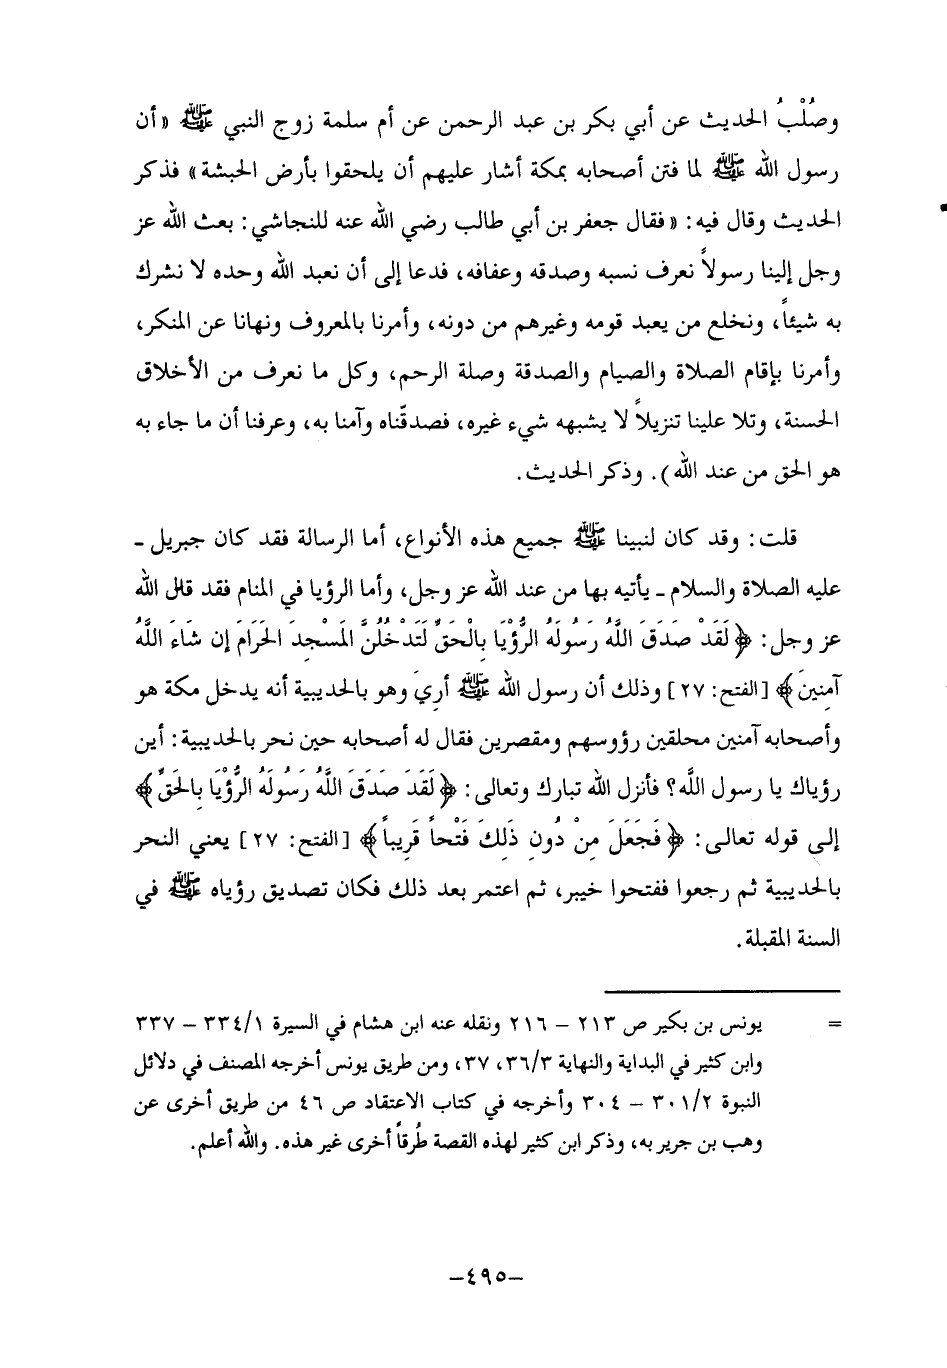 وصُلْبُ الحديث عن أبي بكر بن عبد الرحمن عن أم سلمة زوج النبي ﷺ «أن
رسول الله ﷺ لما فتن أصحابه بمكة أشار عليهم أن يلحقوا بأرض الحبشة» فذكر
الحديث وقال فيه: «فقال جعفر بن أبي طالب رضي الله عنه للنجاشي: بعث الله عز
وجل إلينا رسولاً نعرف نسبه وصدقه وعفافه، فدعا إلى أن نعبد الله وحده لا نشرك
به شيئاً، ونخلع من يعبد قومه وغيرهم من دونه، وأمرنا بالمعروف ونهانا عن المنكر،
وأمرنا بإقام الصلاة والصيام والصدقة وصلة الرحم، وكل ما نعرف من الأخلاق
الحسنة، وتلا علينا تنزيلاً لا يشبهه شيء غيره، فصدقّناه وآمنا به، وعرفنا أن ما جاء به
هو الحق من عند الله). وذكر الحديث.
قلت: وقد كان لنبينا ﷺ جميع هذه الأنواع، أما الرسالة فقد كان جبريل ـ
عليه الصلاة والسلام ـ يأتيه بها من عند الله عز وجل، وأما الرؤيا في المنام فقد قال الله
عز وجل: ﴿لَقَدْ صَدَقَ اللَّهُ رَسُولَهُ الرُّؤْيَا بِالْحَقِّ لَتَدْخُلُنَّ المَسْجِدَ الحَرَامَ إِن شَاءَ اللَّهُ
آمنِينَ﴾ [الفتح: ٢٧] وذلك أن رسول الله ﷺ أريَ وهو بالحديبية أنه يدخل مكة هو
وأصحابه آمنين محلقين رؤوسهم ومقصرين فقال له أصحابه حين نحر بالحديبية: أين
رؤياك يا رسول اللَّه؟ فأنزل الله تبارك وتعالى: ﴿لَقَدَ صَدَقَ اللَّهُ رَسُولَهُ الرُّؤْيَا بِالحَقِّ﴾
إلى قوله تعالى: ﴿فَجَعَلَ مِنْ دُونِ ذَلِكَ فَتْحاً قَرِيباً﴾ [الفتح: ٢٧] يعني النحر
بالحديبية ثم رجعوا ففتحوا خيبر، ثم اعتمر بعد ذلك فكان تصديق رؤياه ﷺ في
السنة المقبلة.
= يونس بن بكير ص ٢١٣ – ٢١٦ ونقله عنه ابن هشام في السيرة ٣٣٤/١ – ٣٣٧
وابن كثير في البداية والنهاية ٣٦/٣، ٣٧، ومن طريق يونس أخرجه المصنف في دلائل
النبوة ٣٠١/٢ – ٣٠٤ وأخرجه في كتاب الاعتقاد ص ٤٦ من طريق أخرى عن
وهب بن جرير به، وذكر ابن كثير لهذه القصة طُرقاً أخرى غير هذه. والله أعلم.
–٤٩٥–